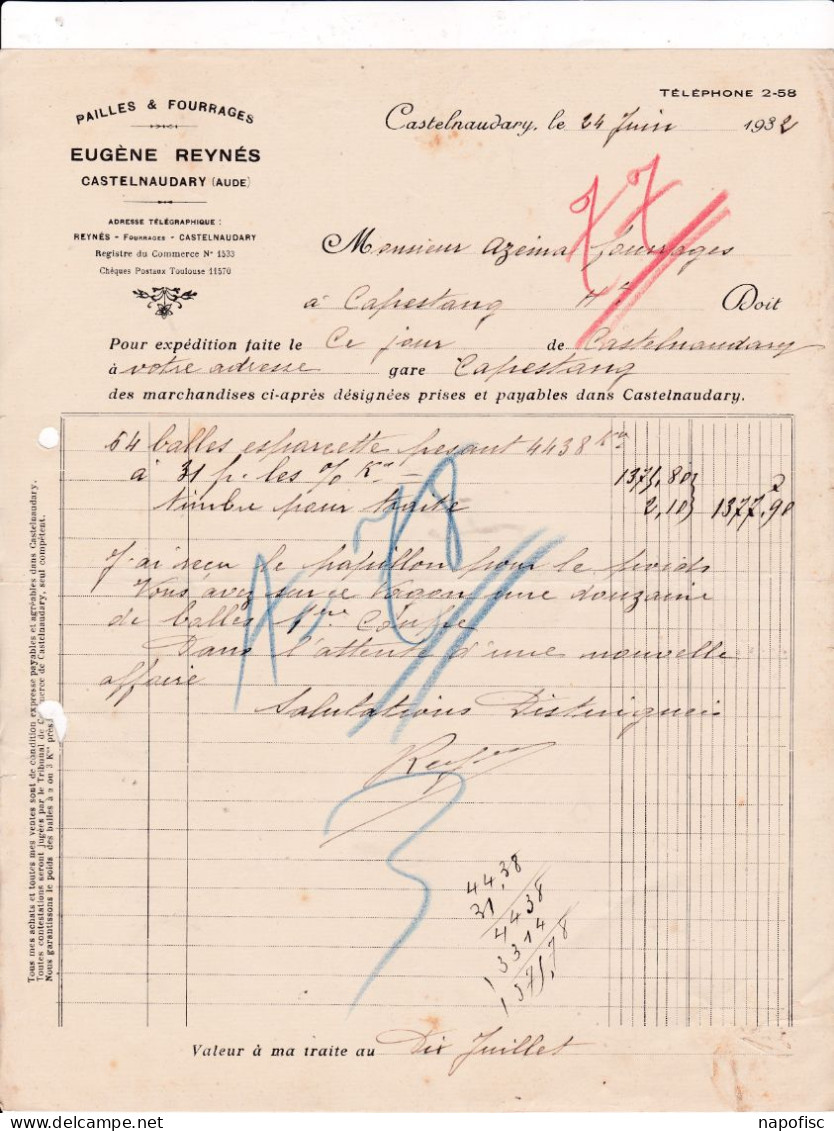 TÉLÉPHONE 2-58
PAILLES & FOURRAGES
EUGÈNE REYNÉS
CASTELNAUDARY (AUDE)
ADRESSE TÉLÉGRAPHIQUE :
REYNÉS - FOURRAGES - CASTELNAUDARY
Registre du Commerce N° 1533
Chèques Postaux Toulouse 11570
Castelnaudary, le 24 Juin 1932
Monsieur Azema fourrages
à Capestang Doit
Pour expédition faite le Ce jour de Castelnaudary
à votre adresse gare Capestang
des marchandises ci-après désignées prises et payables dans Castelnaudary.
64 balles esparcette pesant 4438 Kos
à 31 f. les % Kos 1375,80
timbre pour traite 2,10 1377,90
J'ai reçu le papillon pour le poids
Vous avez sur ce Vagon une douzaine
de balles 1ère Coupe
Dans l'attente d'une nouvelle
affaire
Salutations Distinguées
4438
31
4438
13314
1375,78
Valeur à ma traite au Dix Juillet
Tous mes achats et toutes mes ventes sont de condition expresse payables et agréables dans Castelnaudary.
Toutes contestations seront jugées par le Tribunal de Commerce de Castelnaudary, seul compétent.
Nous garantissons le poids des balles à 2 ou 3 Kos près.
napofisc